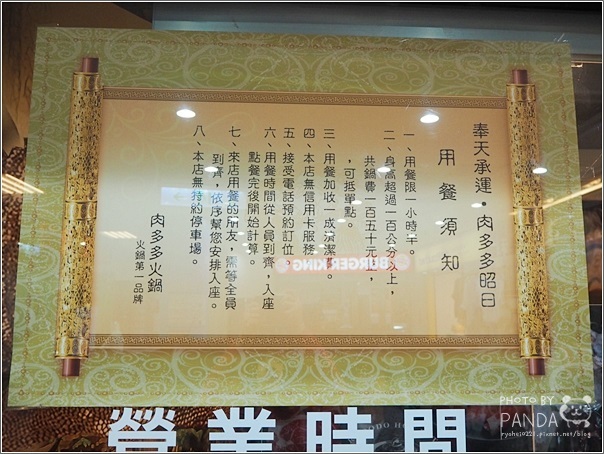 奉天承運。肉多多昭曰
用餐須知
一、用餐限一小時半。
二、身高超過一百公分以上，
共鍋費一百五十元止，
，可抵單點。
三、用餐加收一成清潔費。
四、本店無信用卡服務。
五、接受電話預約訂位。
六、用餐時間從人員到齊，入座
點餐完後開始計算。
七、來店用餐的朋友，需等全員
到齊，依序幫您安排入座。
八、本店無特約停車場。
肉多多火鍋
火鍋第一品牌
BURGER KING
營業時間
PHOTO BY
PANDA
ryohei0221.pixnet.net/blog